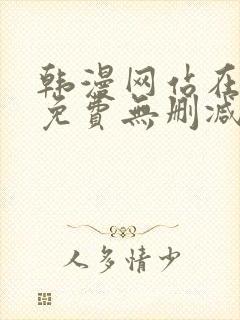 韩漫网站在
免費無删减
人多情少